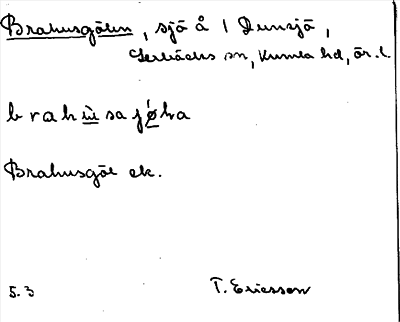 Brahusgölen, sjö å 1 Dunsjö,
Lerbäcks sn, Kumla hd, ör. l.
brahùsajø̀ka
Brahusgöl ek.
5.3 T. Ericsson